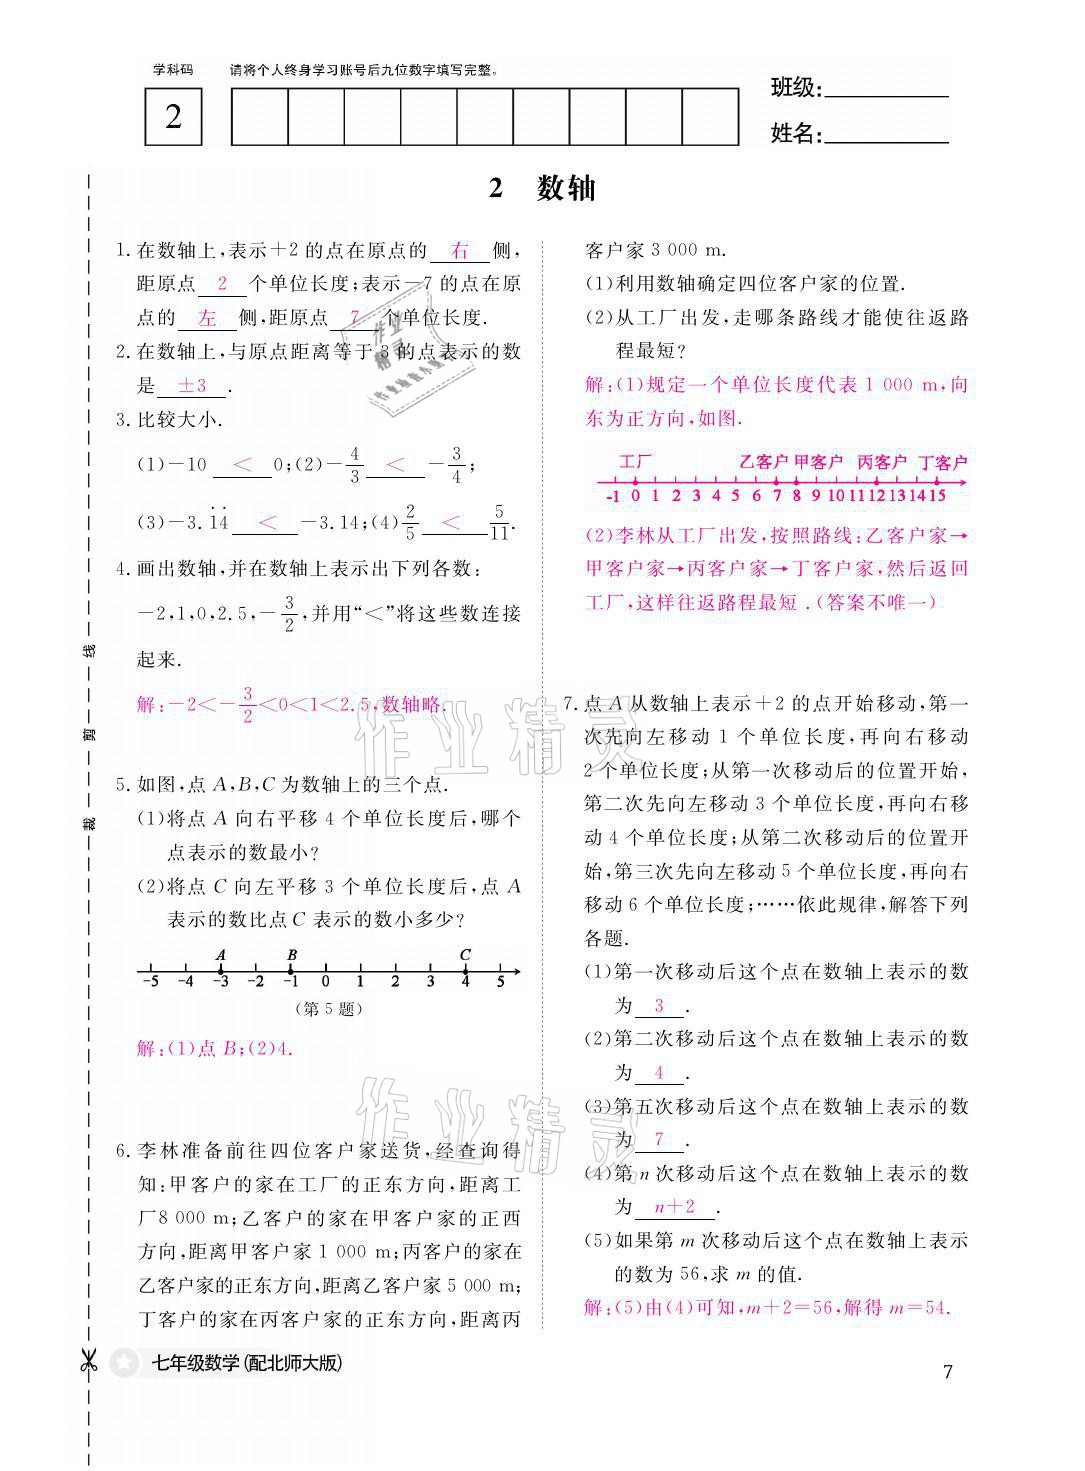 学科码 请将个人终身学习账号后九位数字填写完整。
2
班级:
姓名:
2 数轴
1. 在数轴上,表示+2的点在原点的 右 侧,
距原点 2 个单位长度;表示-7的点在原
点的 左 侧,距原点 7 个单位长度.
2. 在数轴上,与原点距离等于3的点表示的数
是 ±3 .
3. 比较大小.
(1)-10 < 0;(2)-4/3 < -3/4;
(3)-3.1̇4̇ < -3.14;(4)2/5 < 5/11.
4. 画出数轴,并在数轴上表示出下列各数:
-2,1,0,2.5,-3/2,并用“<”将这些数连接
起来.
解:-2<-3/2<0<1<2.5,数轴略.
5. 如图,点A,B,C为数轴上的三个点.
(1)将点A向右平移4个单位长度后,哪个
点表示的数最小?
(2)将点C向左平移3个单位长度后,点A
表示的数比点C表示的数小多少?
A B C
-5 -4 -3 -2 -1 0 1 2 3 4 5
(第5题)
解:(1)点B;(2)4.
6. 李林准备前往四位客户家送货,经查询得
知:甲客户的家在工厂的正东方向,距离工
厂8 000 m;乙客户的家在甲客户家的正西
方向,距离甲客户家1 000 m;丙客户的家在
乙客户家的正东方向,距离乙客户家5 000 m;
丁客户的家在丙客户家的正东方向,距离丙
客户家3 000 m.
(1)利用数轴确定四位客户家的位置.
(2)从工厂出发,走哪条路线才能使往返路
程最短?
解:(1)规定一个单位长度代表1 000 m,向
东为正方向,如图.
工厂 乙客户 甲客户 丙客户 丁客户
-1 0 1 2 3 4 5 6 7 8 9 10 11 12 13 14 15
(2)李林从工厂出发,按照路线:乙客户家→
甲客户家→丙客户家→丁客户家,然后返回
工厂,这样往返路程最短.(答案不唯一)
7. 点A从数轴上表示+2的点开始移动,第一
次先向左移动1个单位长度,再向右移动
2个单位长度;从第一次移动后的位置开始,
第二次先向左移动3个单位长度,再向右移
动4个单位长度;从第二次移动后的位置开
始,第三次先向左移动5个单位长度,再向右
移动6个单位长度;……依此规律,解答下列
各题.
(1)第一次移动后这个点在数轴上表示的数
为 3 .
(2)第二次移动后这个点在数轴上表示的数
为 4 .
(3)第五次移动后这个点在数轴上表示的数
为 7 .
(4)第n次移动后这个点在数轴上表示的数
为 n+2 .
(5)如果第m次移动后这个点在数轴上表示
的数为56,求m的值.
解:(5)由(4)可知,m+2=56,解得m=54.
线
剪
裁
作业精灵
作业精灵
作业
精灵
七年级数学(配北师大版)
7